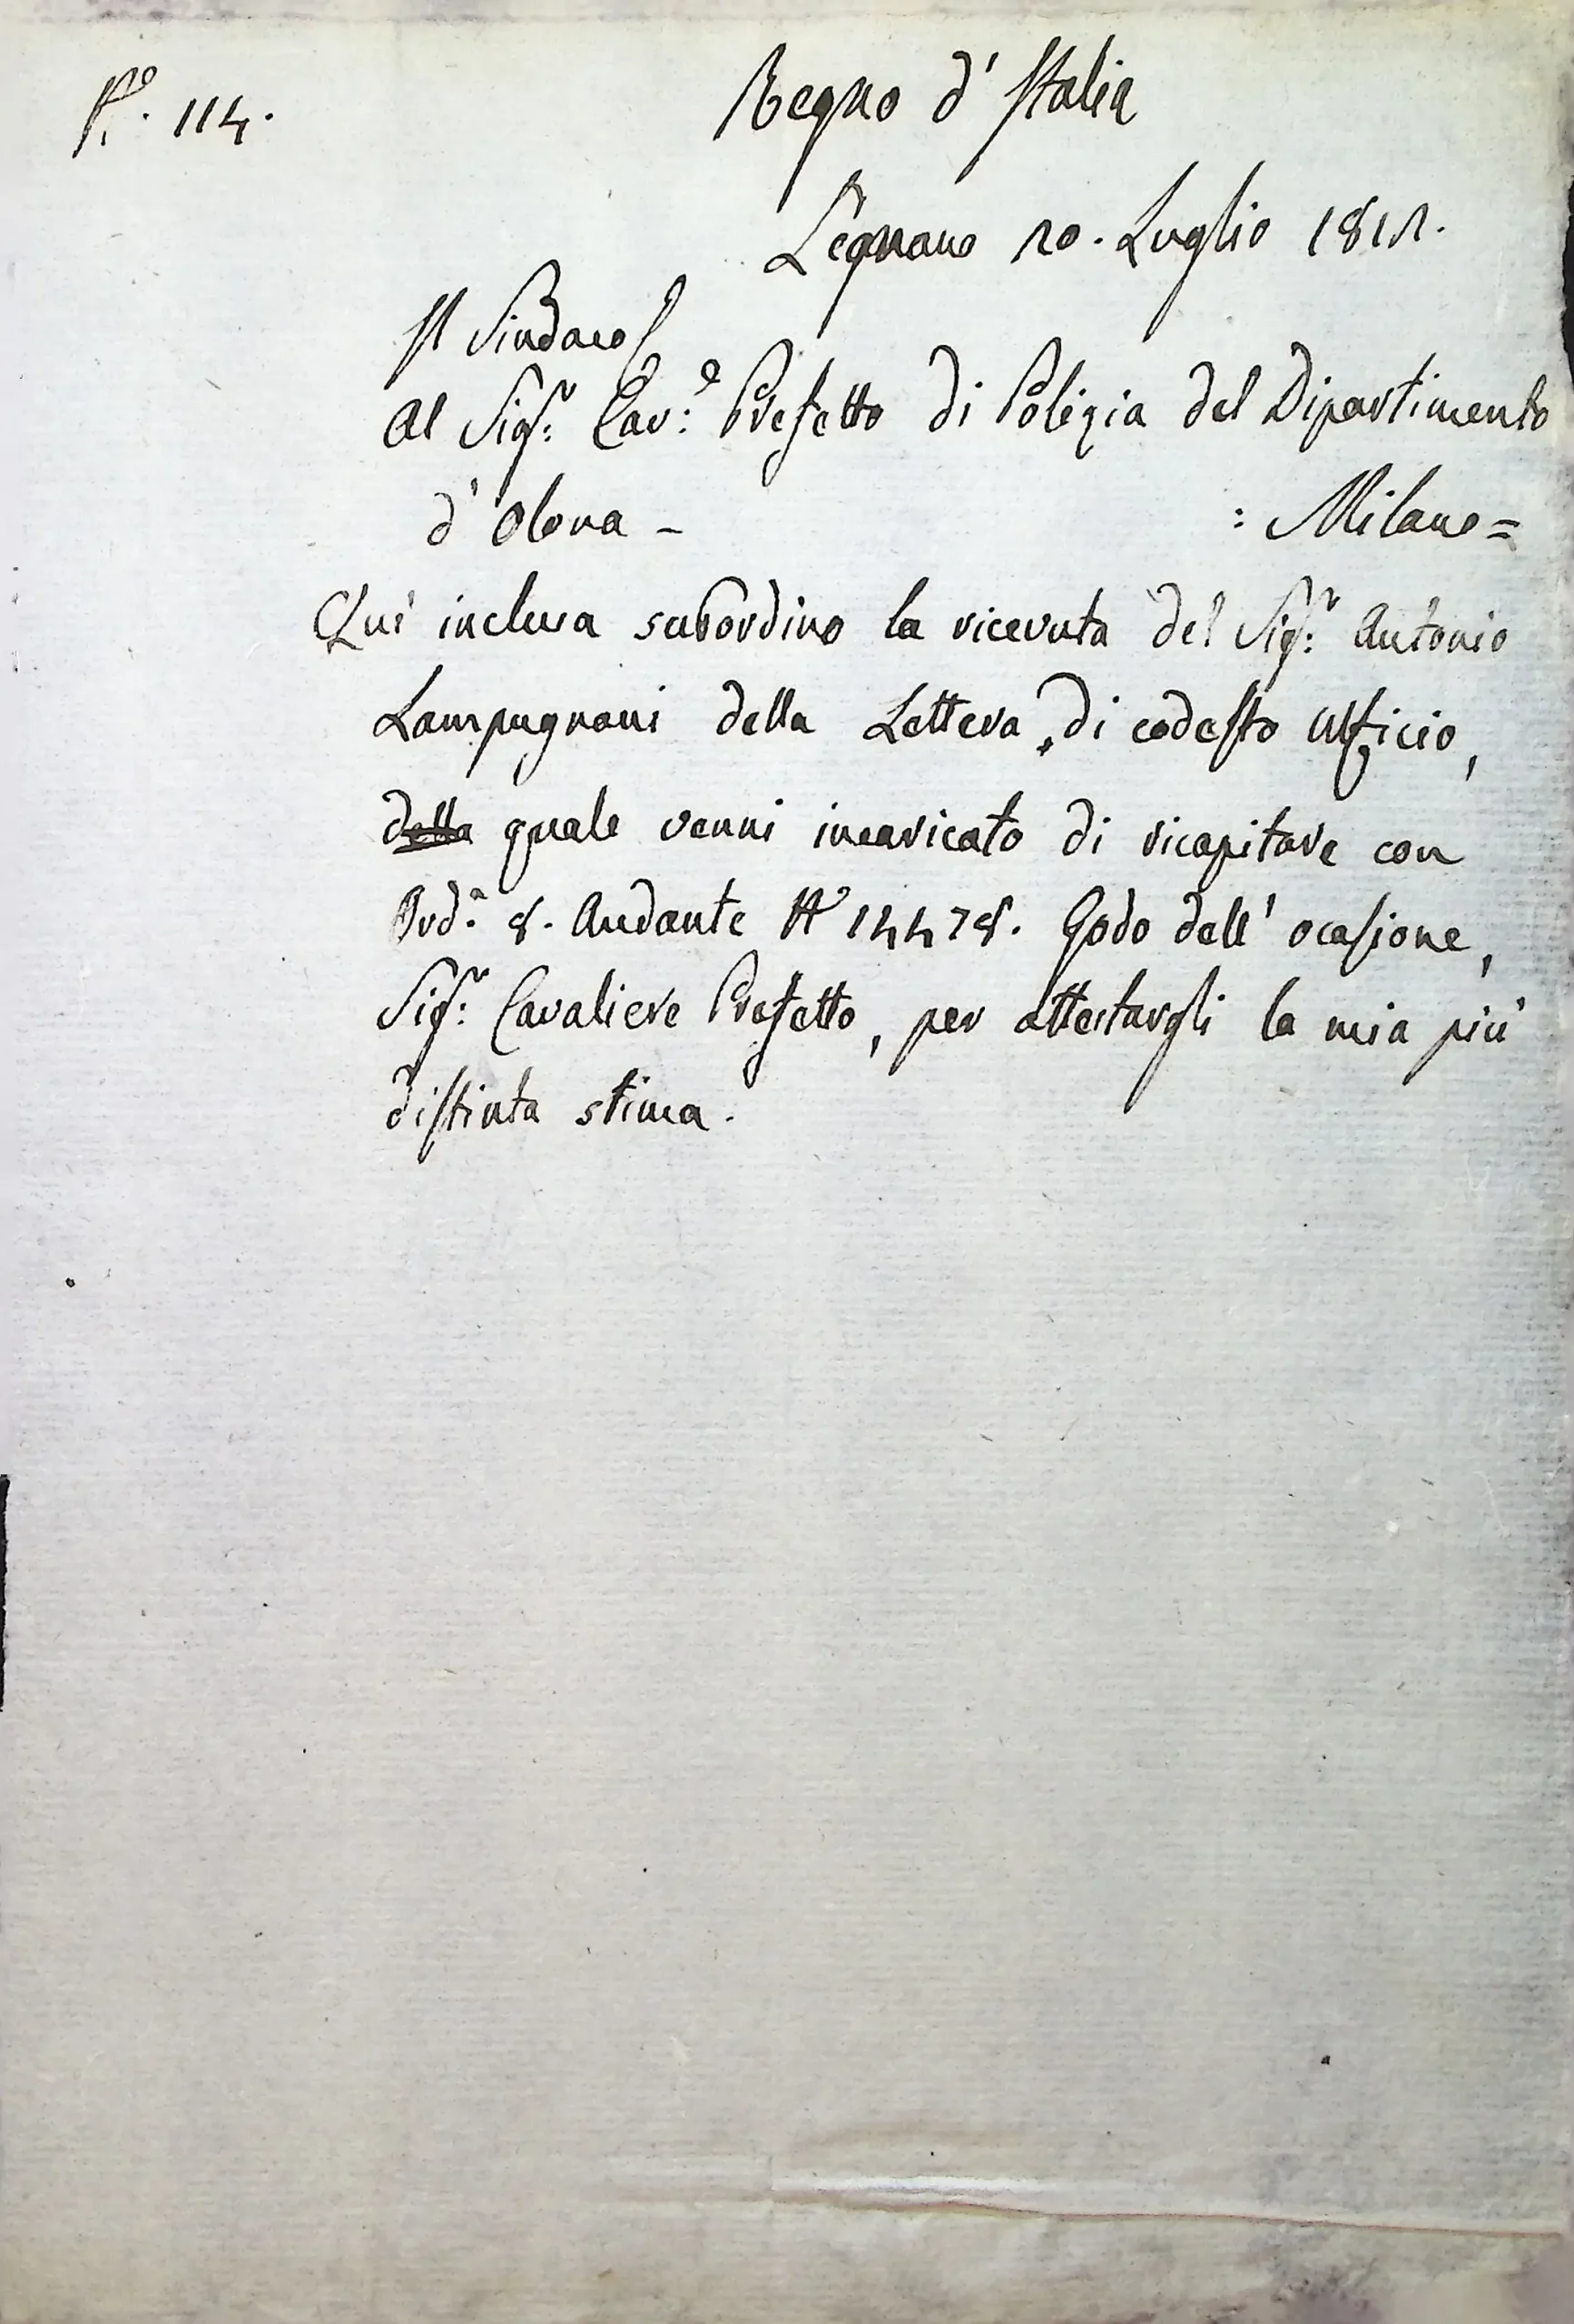 N.º 114.
Regno d'Italia
Legnano 20. Luglio 1812.
Il Sindaco
Al Sig.r Cav.e Prefetto di Polizia del Dipartimento
d'Olona - : Milano =
Qui inclusa subordino la ricevuta del Sig.r Antonio
Lampugnani della Lettera di codesto Ufficio,
della quale venni incaricato di ricapitare con
Ord.a 8. Andante N.º 14478. Godo dell'ocasione,
Sig.r Cavaliere Prefetto, per attestargli la mia più
distinta stima.